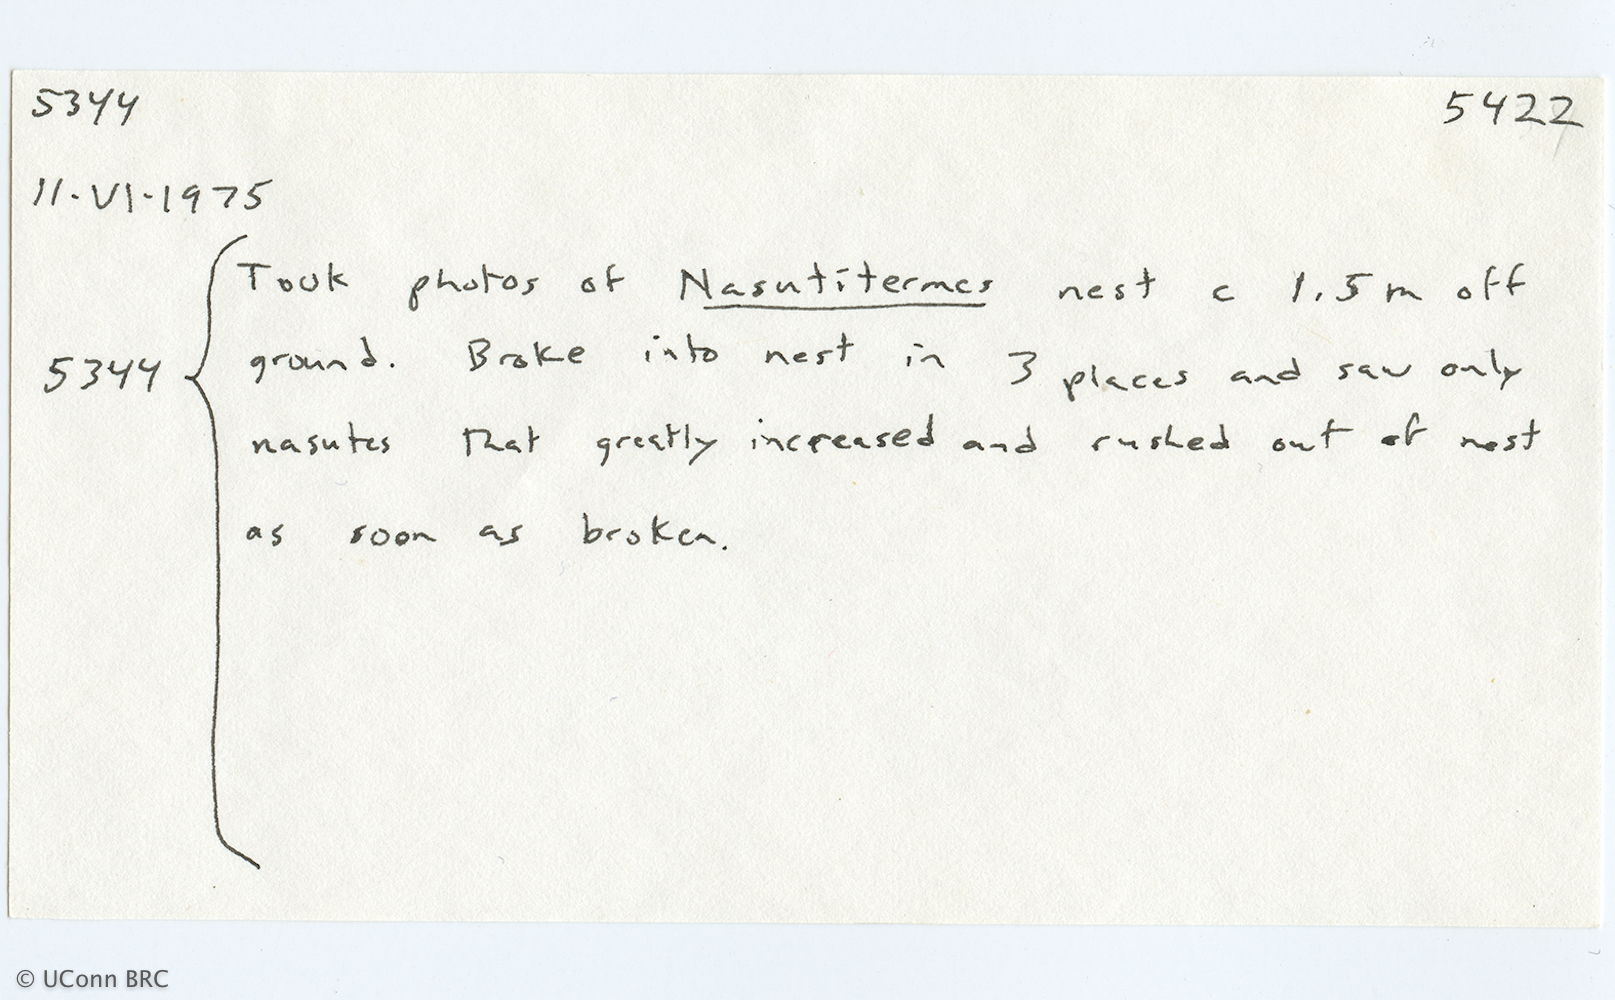 5344 5422
11·VI·1975
Took photos of Nasutitermes nest c 1.5 m off
ground. Broke into nest in 3 places and saw only
5344
nasutes that greatly increased and rushed out of nest
as soon as broken.
© UConn BRC